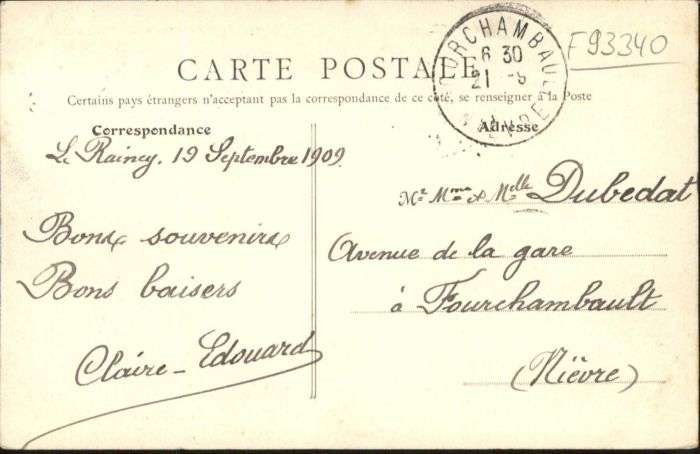 CARTE POSTALE
Certains pays étrangers n'acceptant pas la correspondance de ce côté, se renseigner à la Poste
F 93340
FOURCHAMBAULT
6 30
21 -9
NIÈVRE
Correspondance
Le Raincy, 19 Septembre 1909
Bons souvenirs
Bons baisers
Claire-Edouard
Adresse
Mr Mme & Melle Dubedat
Avenue de la gare
à Fourchambault
(Nièvre)